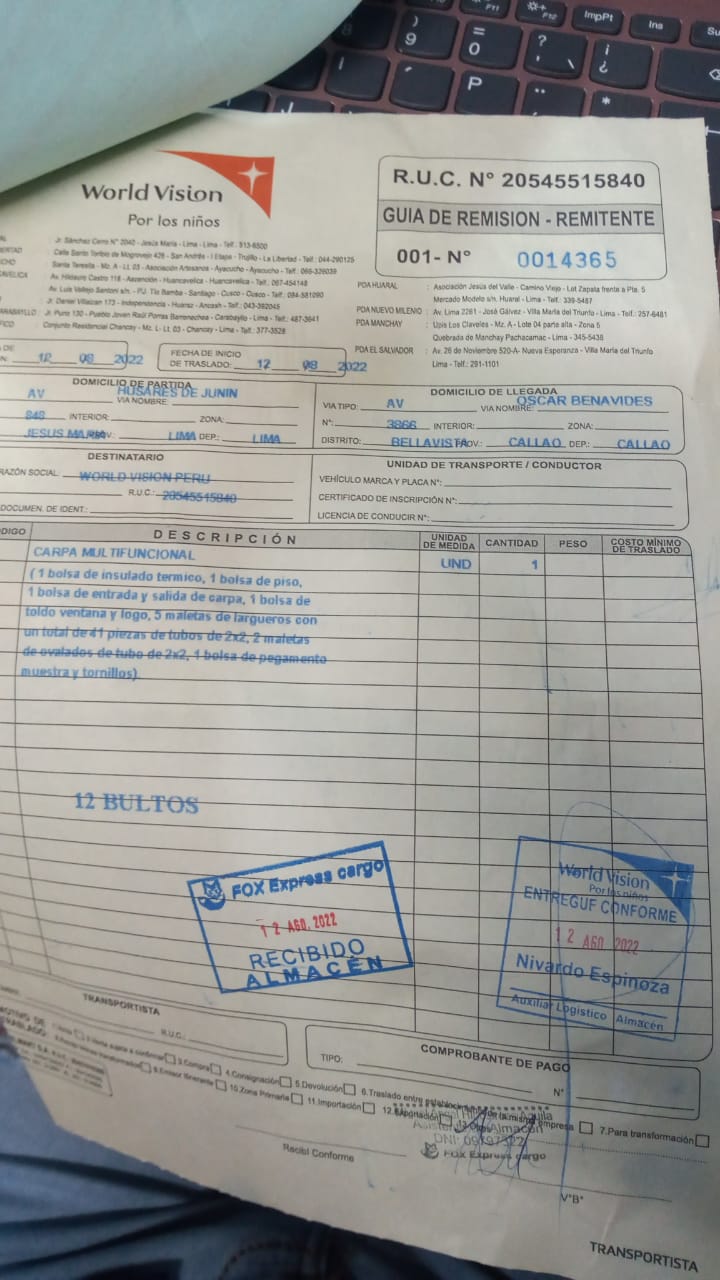 World Vision
Por los niños
R.U.C. N° 20545515840
GUIA DE REMISION - REMITENTE
001- N° 0014365
Jr. Sánchez Cerro N° 2040 - Jesús María - Lima - Lima - Telf.: 513-6500
Calle Santo Toribio de Mogrovejo 426 - San Andrés - I Etapa - Trujillo - La Libertad - Telf.: 044-290125
Santa Teresita - Mz. A - Lt. 03 - Asociación Artesanos - Ayacucho - Ayacucho - Telf.: 066-326039
Av. Hildauro Castro 118 - Ascención - Huancavelica - Huancavelica - Telf.: 067-454148
Av. Luis Vallejo Santoni s/n. - P.J. Tío Bamba - Santiago - Cusco - Cusco - Telf.: 084-581090
Jr. Daniel Villaizan 173 - Independencia - Huaraz - Ancash - Telf.: 043-392045
Jr. Puno 130 - Pueblo Joven Raúl Porras Barrenechea - Carabayllo - Lima - Telf.: 487-3641
Conjunto Residencial Chancay - Mz. L - Lt. 03 - Chancay - Lima - Telf.: 377-3528
PDA HUARAL : Asociación Jesús del Valle - Camino Viejo - Lot Zapata frente a Pte. 5
Mercado Modelo s/n. Huaral - Lima - Telf.: 339-5487
PDA NUEVO MILENIO : Av. Lima 2261 - José Gálvez - Villa María del Triunfo - Lima - Telf.: 257-6481
PDA MANCHAY : Upis Los Claveles - Mz. A - Lote 04 parte alta - Zona 5
Quebrada de Manchay Pachacamac - Lima - 345-5436
PDA EL SALVADOR : Av. 26 de Noviembre 520-A- Nueva Esperanza - Villa María del Triunfo
Lima - Telf.: 291-1101
12 08 2022
FECHA DE INICIO
DE TRASLADO: 12 08 2022
DOMICILIO DE PARTIDA
AV VIA NOMBRE: HUSARES DE JUNIN
848 INTERIOR: ZONA:
JESUS MARIA LIMA DEP.: LIMA
DOMICILIO DE LLEGADA
VIA TIPO: AV VIA NOMBRE: OSCAR BENAVIDES
N°: 3866 INTERIOR: ZONA:
DISTRITO: BELLAVISTA PROV.: CALLAO DEP.: CALLAO
DESTINATARIO
RAZÓN SOCIAL: WORLD VISION PERU
R.U.C.: 20545515840
DOCUMEN. DE IDENT.:
UNIDAD DE TRANSPORTE / CONDUCTOR
VEHÍCULO MARCA Y PLACA N°:
CERTIFICADO DE INSCRIPCIÓN N°:
LICENCIA DE CONDUCIR N°:
DESCRIPCIÓN UNIDAD DE MEDIDA CANTIDAD PESO COSTO MÍNIMO DE TRASLADO
CARPA MULTIFUNCIONAL UND 1
( 1 bolsa de insulado termico, 1 bolsa de piso,
1 bolsa de entrada y salida de carpa, 1 bolsa de
toldo ventana y logo, 5 maletas de largueros con
un total de 41 piezas de tubos de 2x2, 2 maletas
de ovalados de tubo de 2x2, 1 bolsa de pegamento
muestra y tornillos)
12 BULTOS
FOX Express cargo
12 AGO. 2022
RECIBIDO
ALMACÉN
World Vision
Por los niños
ENTREGUE CONFORME
12 AGO 2022
Nivardo Espinoza
Auxiliar Logístico Almacén
TRANSPORTISTA
R.U.C.:
COMPROBANTE DE PAGO
TIPO: N°
3.Compra 4.Consignación 5.Devolución 6.Traslado entre establecimientos de la misma empresa 7.Para transformación
9.Emisor Itinerante 10.Zona Primaria 11.Importación 12.Exportación
FOX Express cargo
Recibí Conforme
V°B°
TRANSPORTISTA